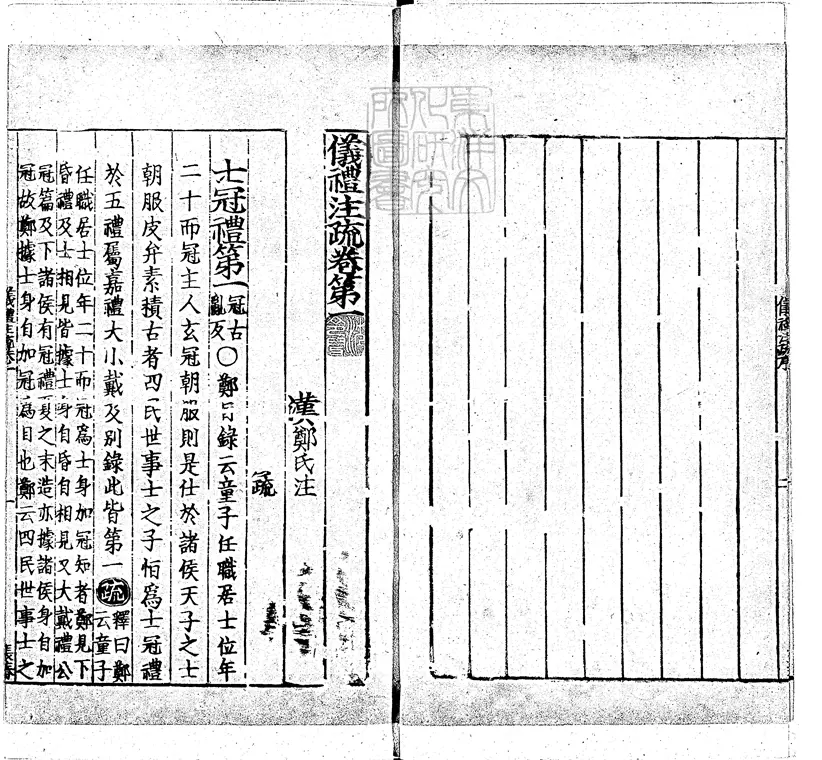 儀禮注疏卷第一
漢鄭氏注
疏
士冠禮第一冠古亂反○鄭目錄云童子任職居士位年
二十而冠主人玄冠朝服則是仕於諸侯天子之士
朝服皮弁素積古者四民世事士之子恒為士冠禮
於五禮屬嘉禮大小戴及別錄此皆第一疏釋曰鄭
云童子
任職居士位年二十而冠為士身加冠知者鄭見下
昏禮及士相見皆據士身自昏自相見又大戴禮公
冠篇及下諸侯有冠禮夏之末造亦據諸侯身自加
冠故鄭據士身自加冠為目也鄭云四民世事士之
儀禮注疏卷一
一